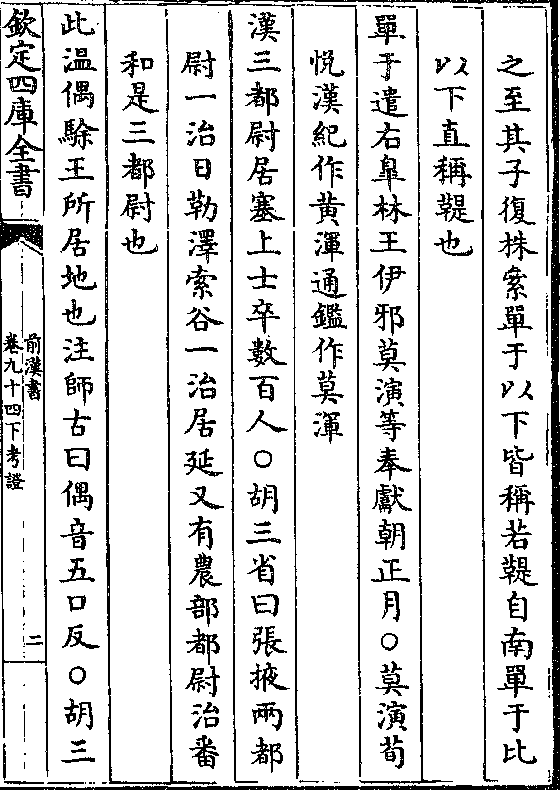 之至其子復株絫單于以下皆稱若鞮自南單于比
以下直稱鞮也
單于遣右臯林王伊邪莫演等奉獻朝正月○莫演荀
悦漢紀作黄渾通鑑作莫渾
漢三都尉居塞上士卒數百人○胡三省曰張掖兩都
尉一治日勒澤索谷一治居延又有農部都尉治番
和是三都尉也
此温偶駼王所居地也注師古曰偶音五口反○胡三
欽定四庫全書
前漢書
卷九十四下考證
二